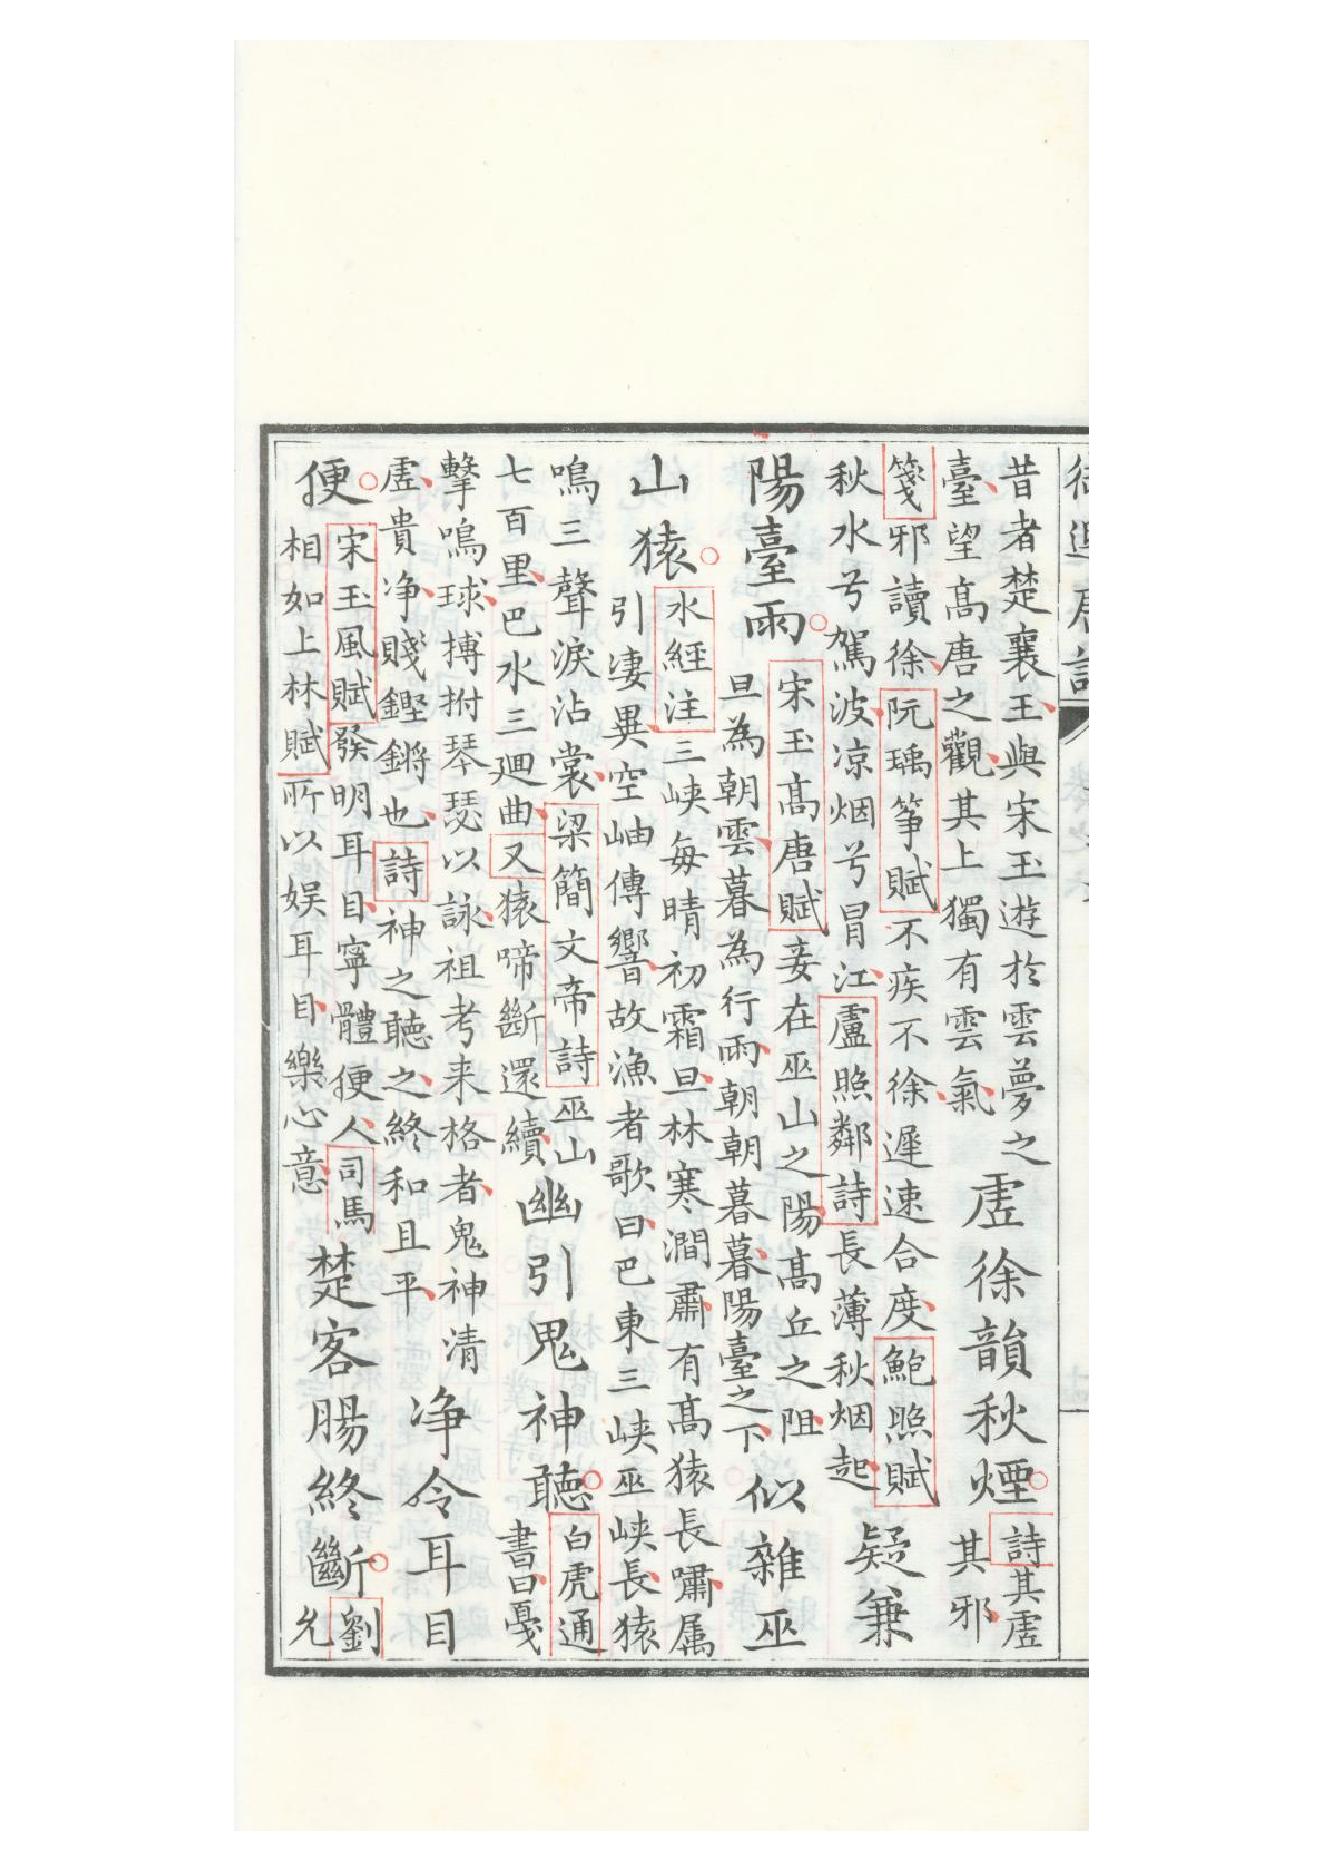 昔者楚襄王與宋玉遊於雲夢之
臺望髙唐之觀其上獨有雲氣
虛徐韻秋煙
詩其虛
其邪
箋邪讀徐阮瑀箏賦不疾不徐遲速合度鮑照賦
秋水兮駕波凉烟兮冒江盧照鄰詩長薄秋烟起
疑兼
陽臺雨
宋玉髙唐賦妾在巫山之陽髙丘之阻
旦為朝雲暮為行雨朝朝暮暮陽臺之下
似雜巫
山猿
水經注三峽每晴初霜旦林寒澗肅有髙猿長嘯属
引凄異空岫傳響故漁者歌曰巴東三峽巫峽長猿
鳴三聲淚沾裳梁簡文帝詩巫山
七百里巴水三廻曲又猿啼斷還續
幽引鬼神聽
白虎通
書曰戛
擊鳴球搏拊琴瑟以詠祖考来格者鬼神清
虛貴净賤鏗鏘也詩神之聽之終和且平
净令耳目
便
宋玉風賦發明耳目寧體便人司馬
相如上林賦所以娛耳目樂心意
楚客腸終斷
劉
允